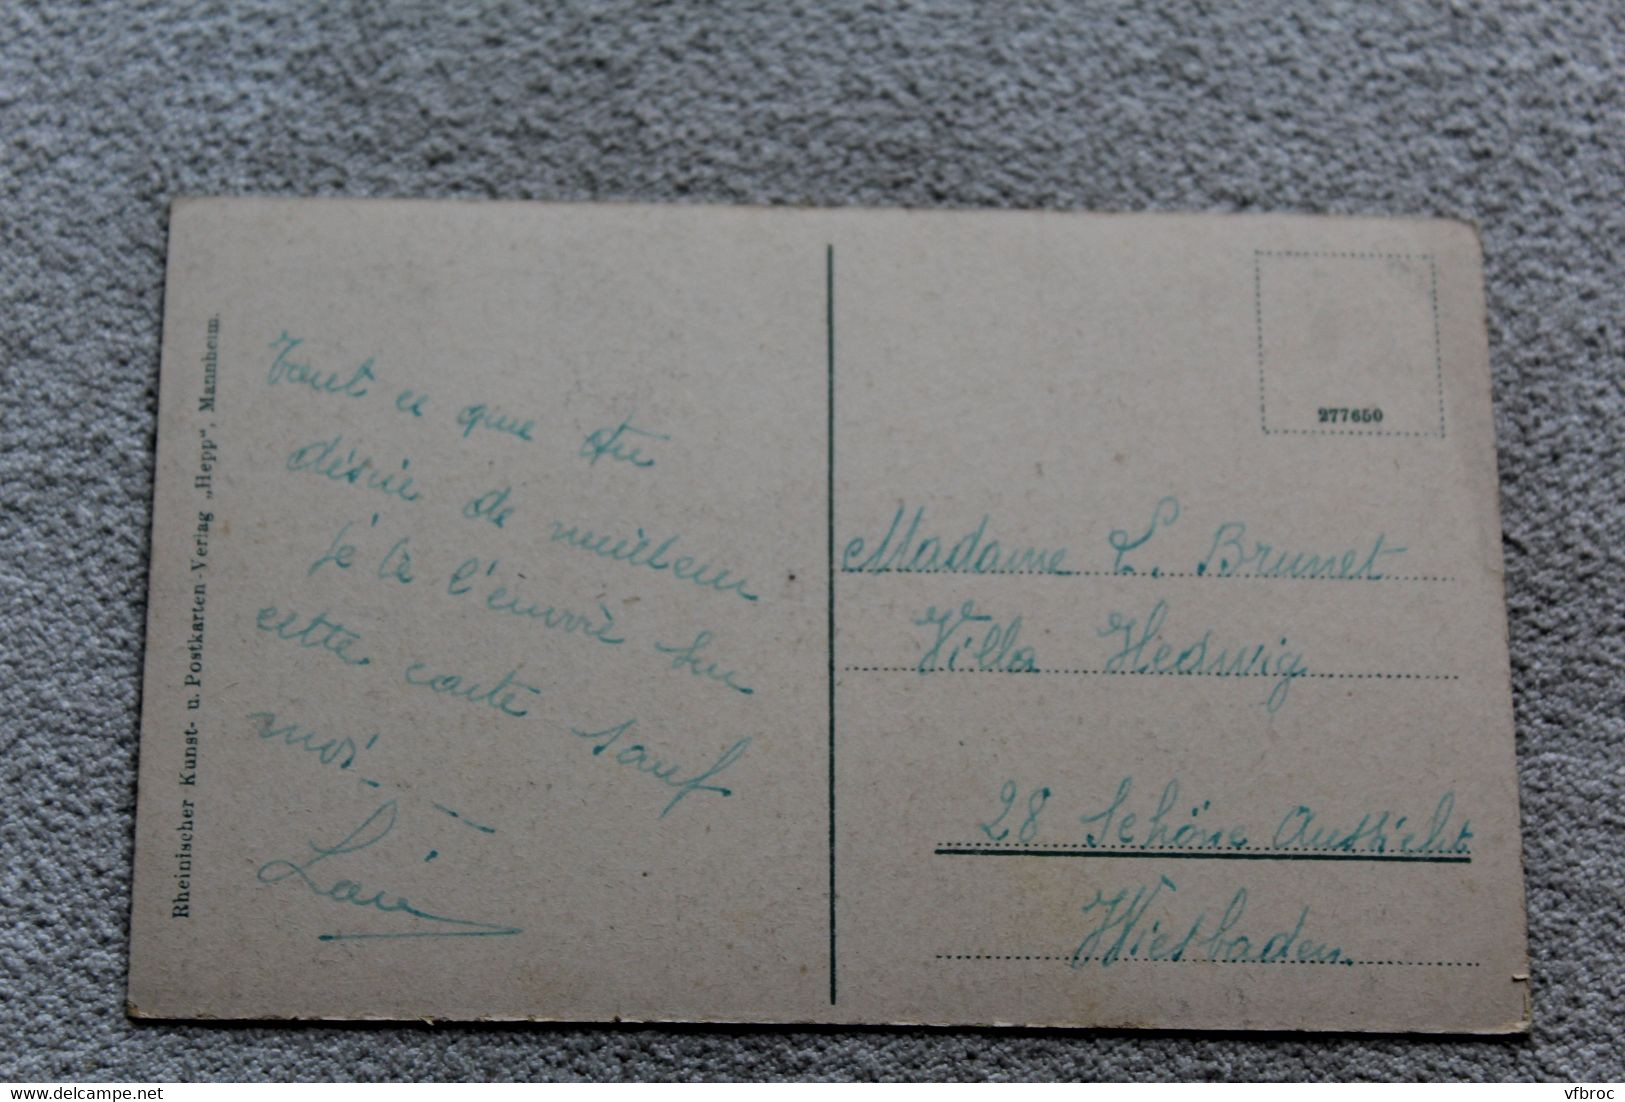 Rheinischer Kunst- u. Postkarten-Verlag „Hepp", Mannheim.
Tout ce que tu
désire de meilleur
je te l'envoie sur
cette carte sauf
moi
277650
Madame L. Brunet
Villa Hedwig
28 Schöne Aussicht
Wiesbaden
www.delcampe.net
vfbroc